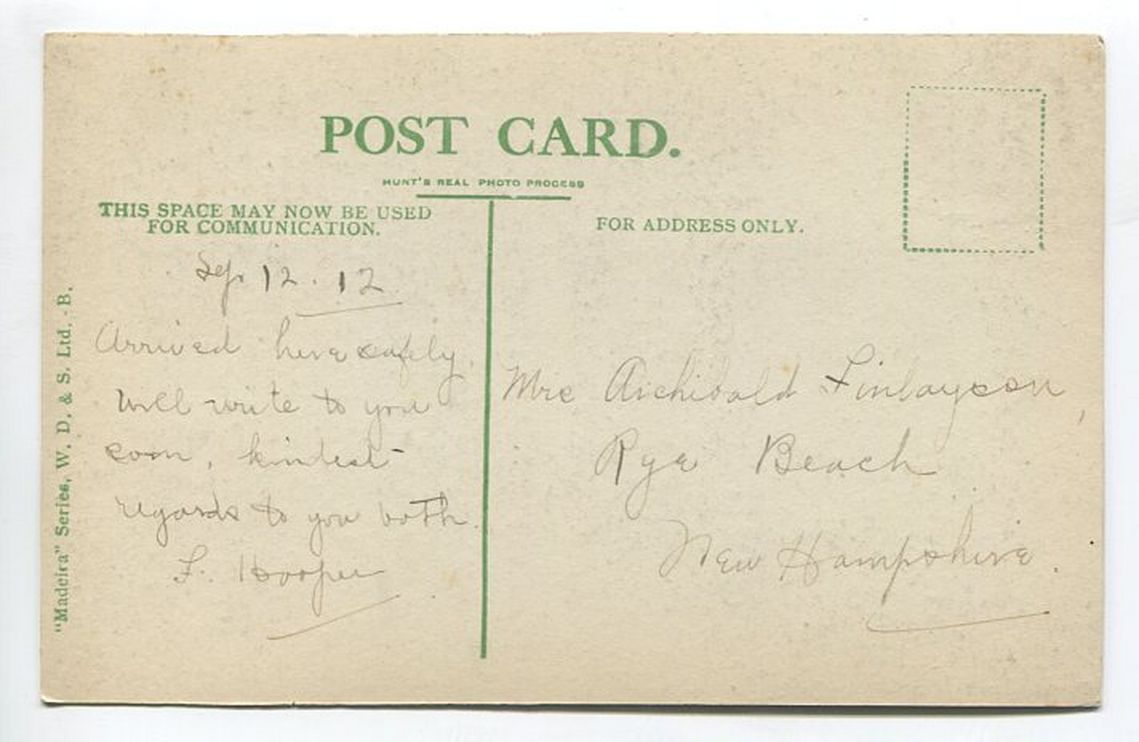 POST CARD.
HUNT'S REAL PHOTO PROCESS
THIS SPACE MAY NOW BE USED
FOR COMMUNICATION.
FOR ADDRESS ONLY.
"Madeira" Series, W. D. & S. Ltd. - B.
Sep 12. 12
Arrived here safely
will write to you
soon, kindest
regards to you both.
F. Hooper
Mrs Archibald Finlayson,
Rye Beach
New Hampshire.